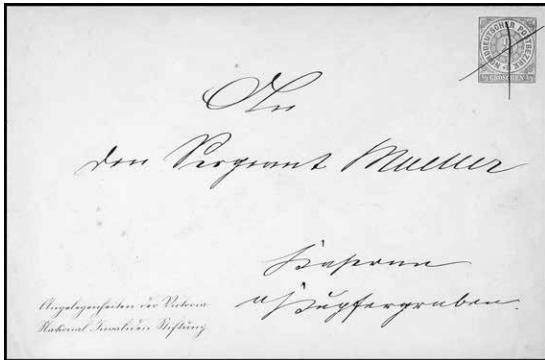 NORDDEUTSCHER POSTBEZIRK
GROSCHEN
An
den Sergeant Mueller
Kaserne
a/Kupfergraben.
Angelegenheiten der Victoria
National Invaliden Stiftung